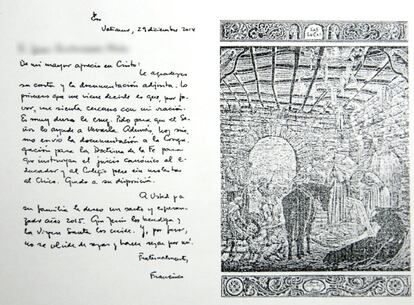 Vaticano, 29 diciembre 2014
De mi mayor aprecio en Cristo:
Le agradezco
su carta y la documentación adjunta. Lo
primero que me viene decirle es que, por fa-
vor, me sienta cercano con mi oración.
Es muy dura la cruz. Pido para que el Se-
ñor lo ayude a llevarla. Además, hoy mis-
mo envío la documentación a la Congre-
gación para la Doctrina de la Fe para
que instruyan el juicio canónico al e-
ducador y al Colegio para sin molestar
al Chico. Quedo a su disposición.
A Usted y a
su familia le deseo un santo y esperan-
zador año 2015. Que Jesús los bendiga y
la Virgen Santa los cuide. Y, por favor,
no se olvide de rezar y hacer rezar por mí.
Fraternalmente,
Francisco